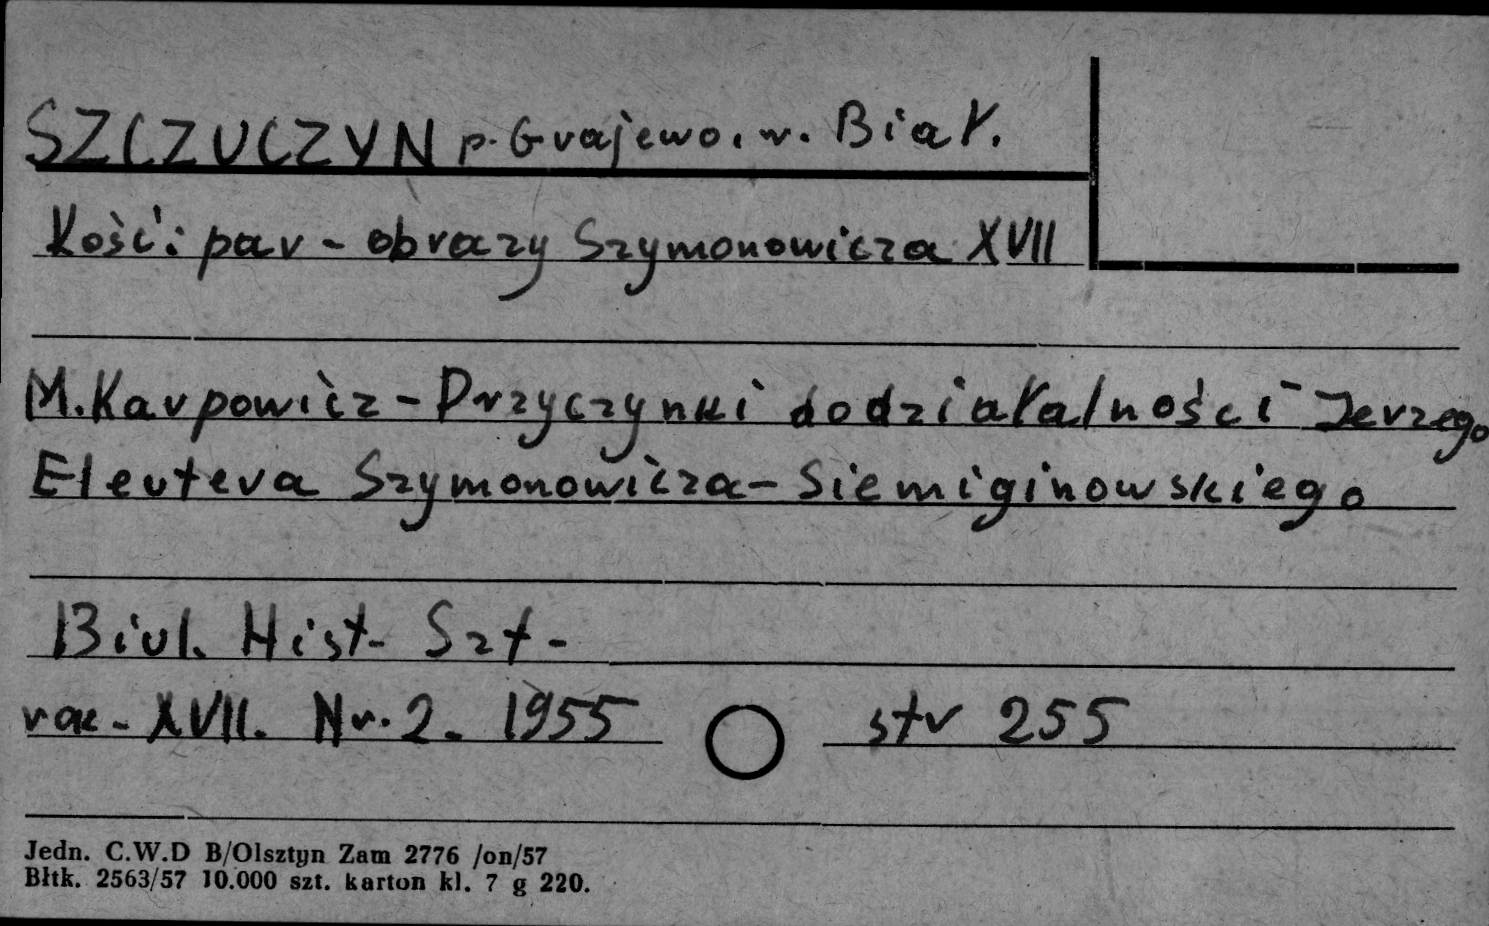 SZCZUCZYN p. Grajewo. w. Biał.
Kość. par - obrazy Szymonowicza XVII
M. Karpowicz - Przyczynki do działalności Jerzego
Eleutera Szymonowicza - Siemiginowskiego
Biul. Hist. Szt.
rok. XVII. Nr. 2. 1955 str 255
Jedn. C.W.D B/Olsztyn Zam 2776 /on/57
Błtk. 2563/57 10.000 szt. karton kl. 7 g 220.